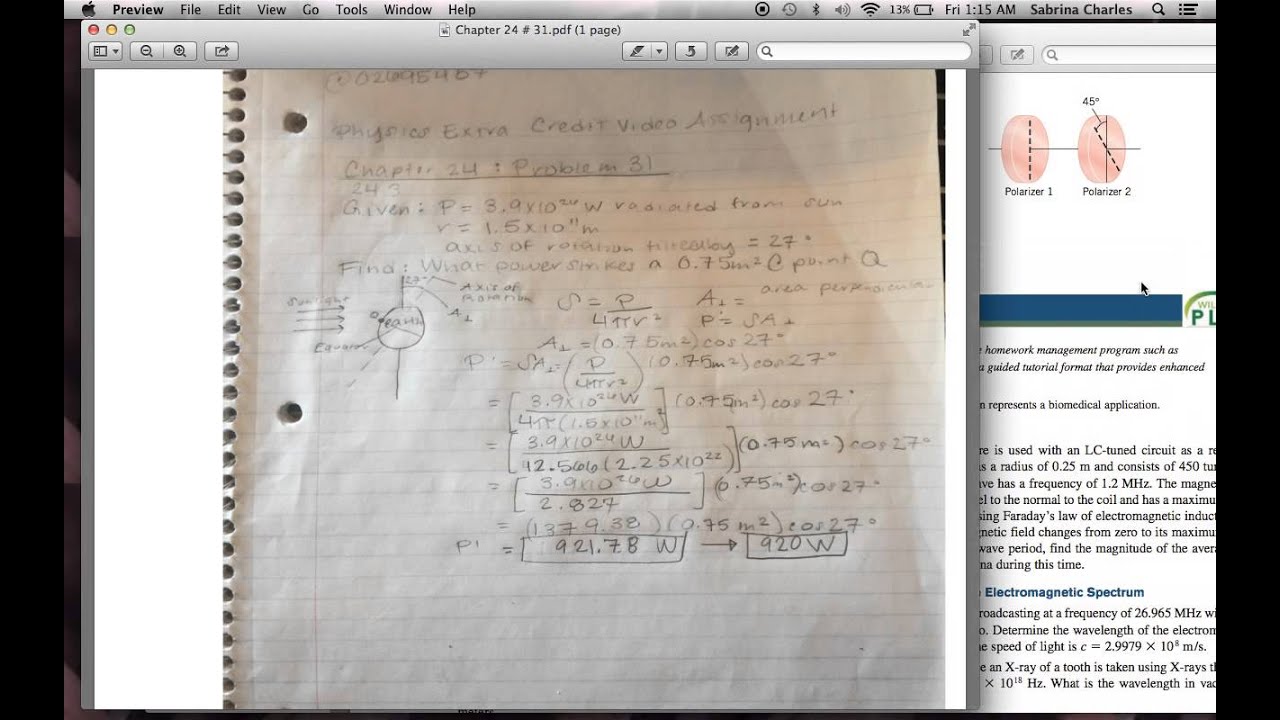 Preview File Edit View Go Tools Window Help
13% Fri 1:15 AM Sabrina Charles
Chapter 24 # 31.pdf (1 page)
@02695467
Physics Extra Credit Video Assignment
Chapter 24 : Problem 31
24.3
Given: P = 3.9x10²⁶ W radiated from sun
r = 1.5x10¹¹ m
axis of rotation tilted by = 27°
Find: What power strikes a 0.75m² @ point Q
27°
Axis of
Rotation
Sunlight
A⊥
Q
earth
Equator
S = P
4πr²
A⊥ = area perpendicular
P' = SA⊥
A⊥ = (0.75m²) cos 27°
P' = SA⊥ = (P / 4πr²) (0.75m²) cos 27°
= [3.9x10²⁶ W / 4π(1.5x10¹¹m)²] (0.75m²) cos 27°
= [3.9x10²⁶ W / 12.566(2.25x10²²)] (0.75m²) cos 27°
= [3.9x10²⁶ W / 2.827] (0.75m²) cos 27°
= (1379.38) (0.75 m²) cos 27°
P' = 921.78 W → 920 W
45°
Polarizer 1 Polarizer 2
WIL
PL
homework management program such as
a guided tutorial format that provides enhanced
n represents a biomedical application.
re is used with an LC-tuned circuit as a re
s a radius of 0.25 m and consists of 450 tur
ve has a frequency of 1.2 MHz. The magne
el to the normal to the coil and has a maximu
sing Faraday's law of electromagnetic induct
netic field changes from zero to its maximu
wave period, find the magnitude of the avera
na during this time.
Electromagnetic Spectrum
roadcasting at a frequency of 26.965 MHz wi
o. Determine the wavelength of the electrom
e speed of light is c = 2.9979 × 10⁸ m/s.
e an X-ray of a tooth is taken using X-rays th
× 10¹⁸ Hz. What is the wavelength in vac